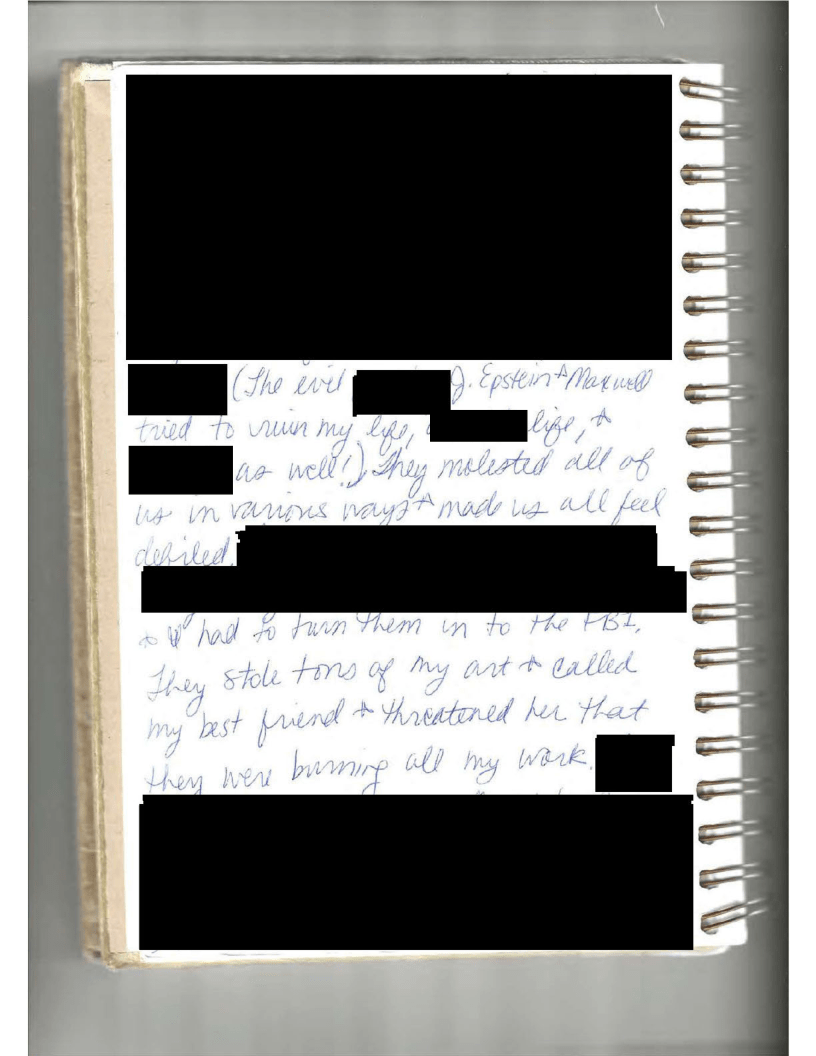 (The evil J. Epstein + Maxwell
tried to ruin my life, life, +
as well!) They molested all of
us in various ways + made us all feel
defiled.
+ I had to turn them in to the FBI.
They stole tons of my art + called
my best friend + threatened her that
they were burning all my work.